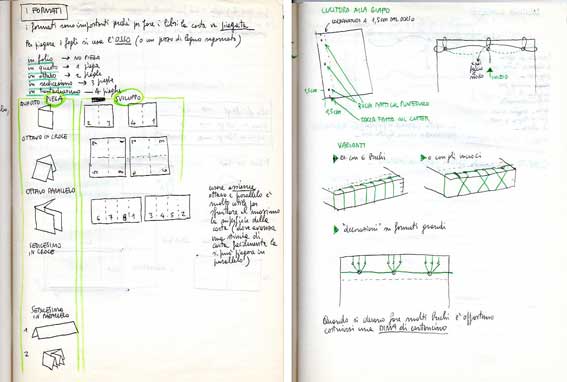 I FORMATI
i formati sono importanti perché per fare i libri la carta va piegata
Per piegare i fogli si usa l'osso (o un pezzo di legno sagomato)
in folio → NO PIEGA
in quarto → 1 piega
in ottavo → 2 pieghe
in sedicesimo → 3 pieghe
in trentaduesimo → 4 pieghe
PIEGA
SVILUPPO
QUARTO
2 3
4 1
OTTAVO IN CROCE
OTTAVO PARALLELO
6 7 8 1
3 4 5 2
SEDICESIMO
IN CROCE
SEDICESIMO
IN PARALLELO
1
2
ottavo e parallelo è
molto utile per
sfruttare al massimo
la superficie della
carta (dove avanza
una striscia di
carta facilmente la
si può piegare in
parallelo)
CUCITURA ALLA GIAPPO
1,5 cm DAL DORSO
1,5 cm
INIZIO
BUCHI FATTI COL PUNTERUOLO
FATTO COL CUTTER
VARIANTI
con 6 buchi
con gli incroci
"decorazioni" su formati grandi
Quando si devono fare molti buchi è opportuno
costruirsi una DIMA di cartoncino